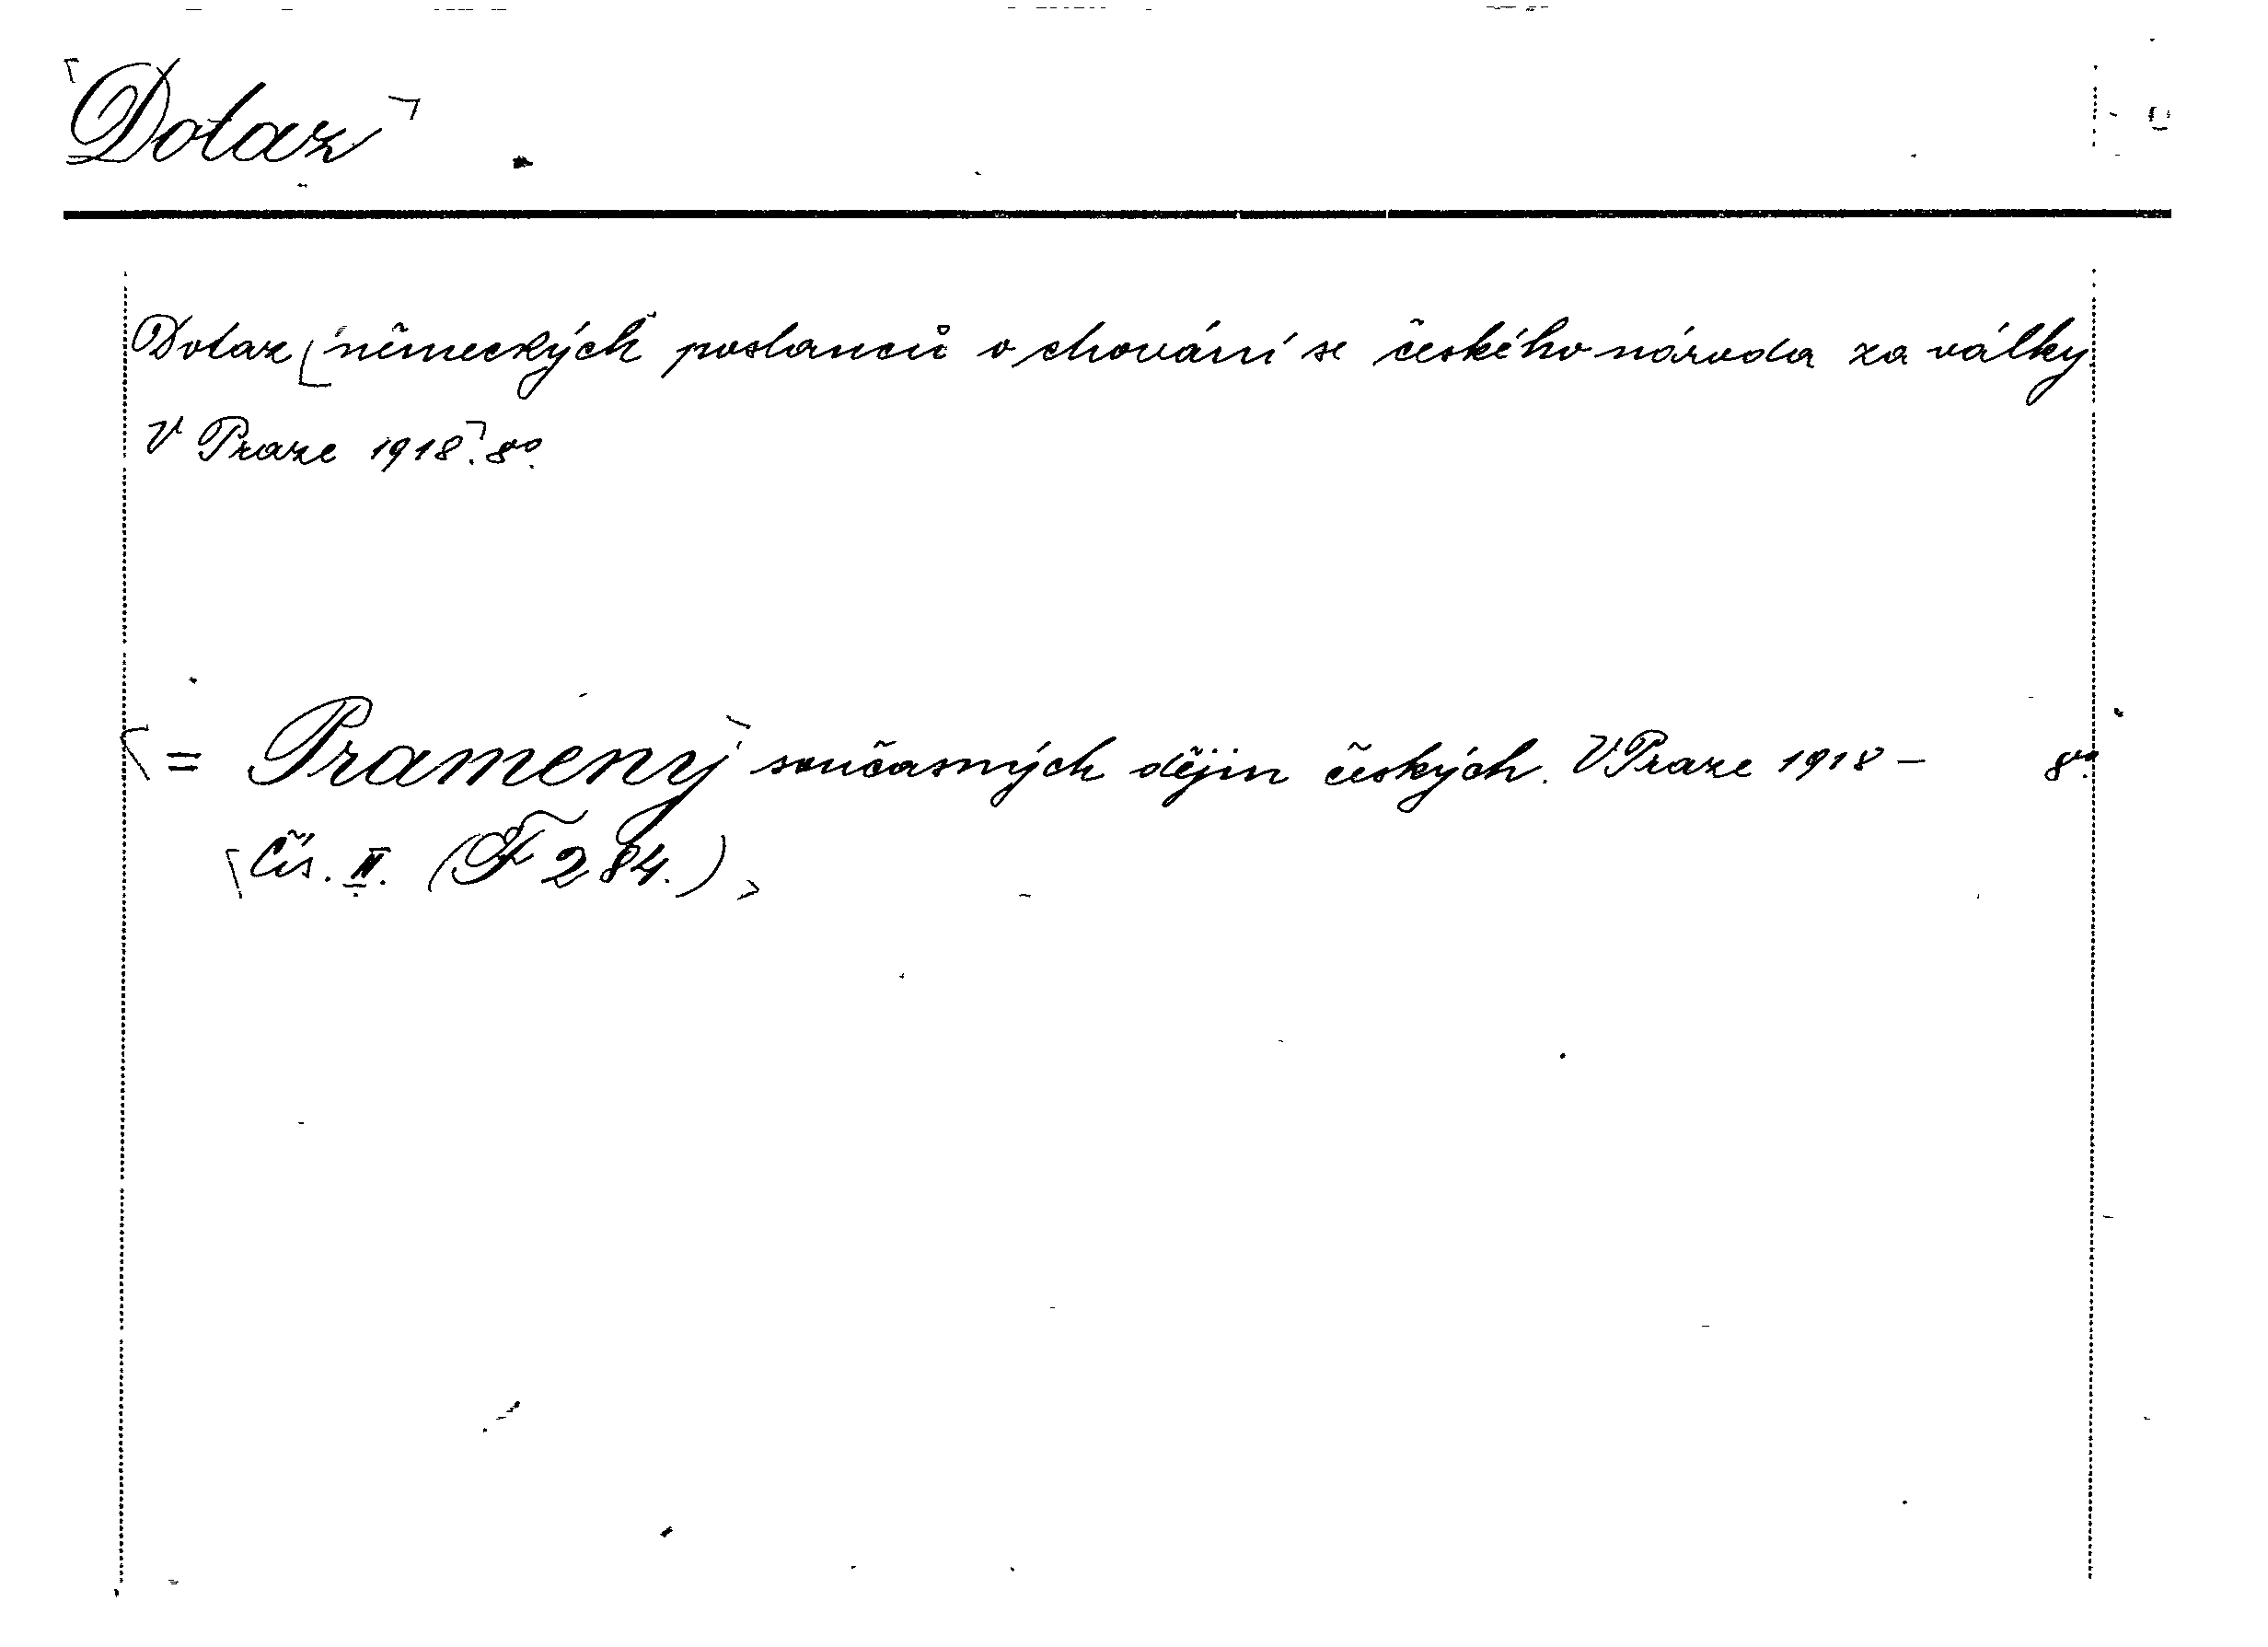 Dotaz
Dotaz německých poslanců o chování se českého národa za války.
V Praze 1918. 8°.
= Prameny současných dějin českých. V Praze 1918 - 8°.
Čís. II. (F 284.)